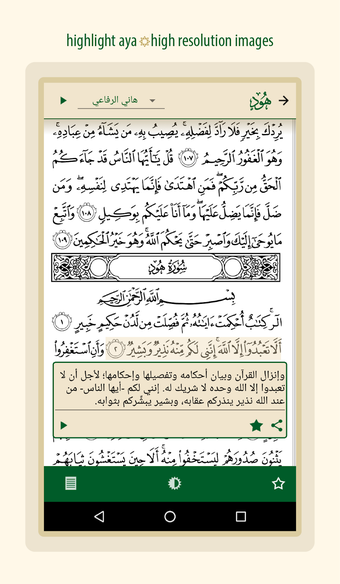 highlight aya high resolution images
هاني الرفاعي
هُود
يُرِدْكَ بِخَيْرٍ فَلَا رَآدَّ لِفَضْلِهِۦ يُصِيبُ بِهِۦ مَن يَشَآءُ مِنْ عِبَادِهِۦ
وَهُوَ ٱلْغَفُورُ ٱلرَّحِيمُ ١٠٧ قُلْ يَٰٓأَيُّهَا ٱلنَّاسُ قَدْ جَآءَكُمُ
ٱلْحَقُّ مِن رَّبِّكُمْ فَمَنِ ٱهْتَدَىٰ فَإِنَّمَا يَهْتَدِى لِنَفْسِهِۦ وَمَن
ضَلَّ فَإِنَّمَا يَضِلُّ عَلَيْهَا وَمَآ أَنَا۠ عَلَيْكُم بِوَكِيلٍ ١٠٨ وَٱتَّبِعْ
مَا يُوحَىٰٓ إِلَيْكَ وَٱصْبِرْ حَتَّىٰ يَحْكُمَ ٱللَّهُ وَهُوَ خَيْرُ ٱلْحَٰكِمِينَ ١٠٩
سُورَةُ هُودٍ
بِسْمِ ٱللَّهِ ٱلرَّحْمَٰنِ ٱلرَّحِيمِ
الٓر كِتَٰبٌ أُحْكِمَتْ ءَايَٰتُهُۥ ثُمَّ فُصِّلَتْ مِن لَّدُنْ حَكِيمٍ خَبِيرٍ ١
أَلَّا تَعْبُدُوٓا۟ إِلَّا ٱللَّهَ إِنَّنِى لَكُم مِّنْهُ نَذِيرٌ وَبَشِيرٌ ٢ وَأَنِ ٱسْتَغْفِرُوا۟
وإنزال القرآن وبيان أحكامه وتفصيلها وإحكامها؛ لأجل أن لا
تعبدوا إلا الله وحده لا شريك له. إنني لكم -أيها الناس- من
عند الله نذير ينذركم عقابه، وبشير يبشّركم بثوابه.
يَثْنُونَ صُدُورَهُمْ لِيَسْتَخْفُوا۟ مِنْهُ أَلَا حِينَ يَسْتَغْشُونَ ثِيَابَهُمْ